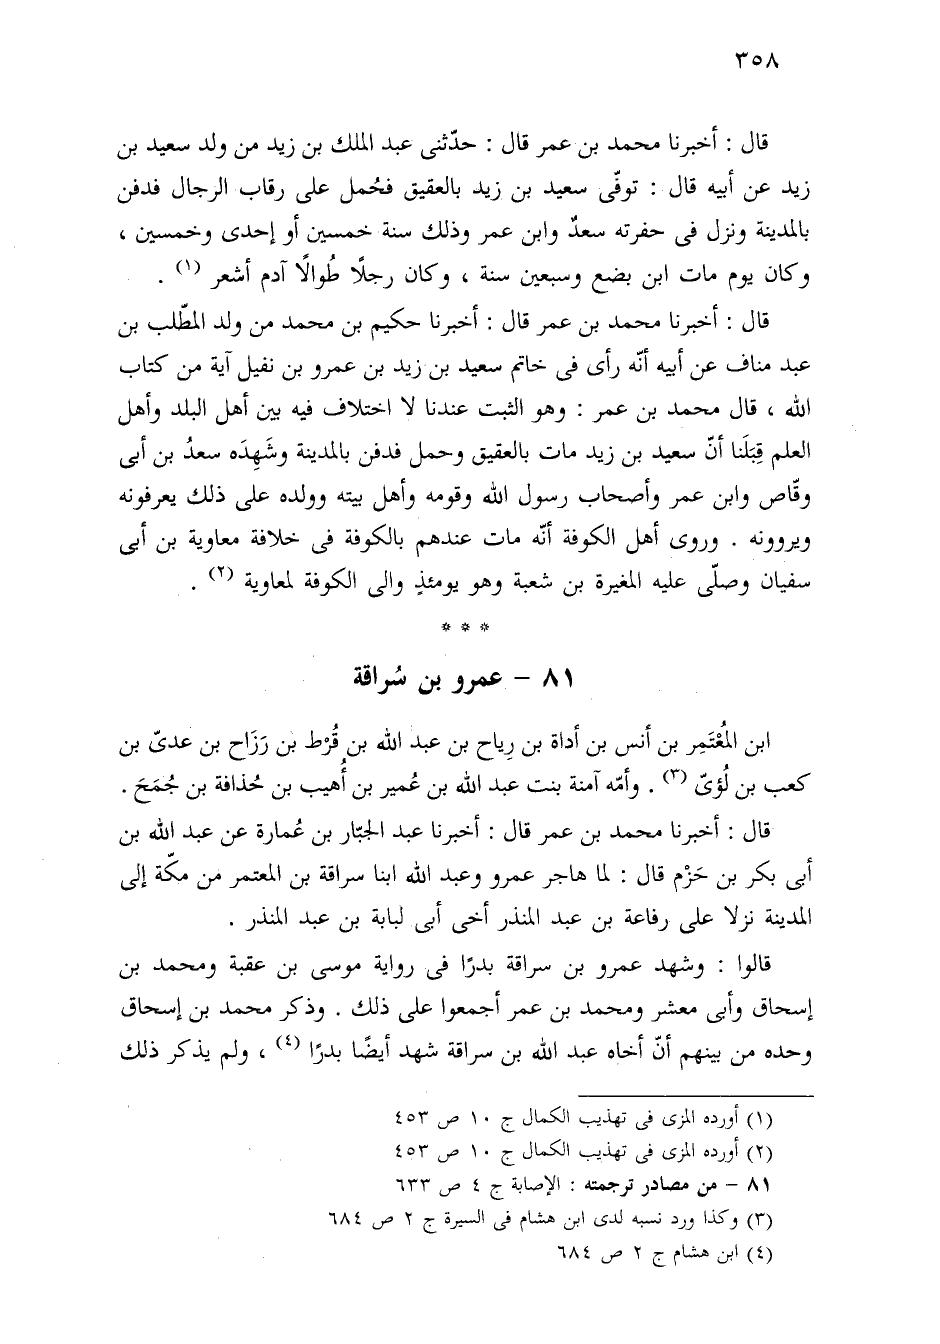 ٣٥٨
قال : أخبرنا محمد بن عمر قال : حدّثنى عبد الملك بن زيد من ولد سعيد بن
زيد عن أبيه قال : توفّى سعيد بن زيد بالعقيق فحُمل على رقاب الرجال فدفن
بالمدينة ونزل فى حفرته سعدٌ وابن عمر وذلك سنة خمسين أو إحدى وخمسين ،
وكان يوم مات ابن بضع وسبعين سنة ، وكان رجلًا طُوالًا آدم أشعر (١) .
قال : أخبرنا محمد بن عمر قال : أخبرنا حكيم بن محمد من ولد المطّلب بن
عبد مناف عن أبيه أنّه رأى فى خاتم سعيد بن زيد بن عمرو بن نفيل آية من كتاب
الله ، قال محمد بن عمر : وهو الثبت عندنا لا اختلاف فيه بين أهل البلد وأهل
العلم قِبَلَنا أنّ سعيد بن زيد مات بالعقيق وحمل فدفن بالمدينة وشَهِدَه سعدُ بن أبى
وقّاص وابن عمر وأصحاب رسول الله وقومه وأهل بيته وولده على ذلك يعرفونه
ويروونه . وروى أهل الكوفة أنّه مات عندهم بالكوفة فى خلافة معاوية بن أبى
سفيان وصلّى عليه المغيرة بن شعبة وهو يومئذٍ والى الكوفة لمعاوية (٢) .
* * *
٨١ – عمرو بن سُراقة
ابن المُعْتَمِر بن أنس بن أداة بن رِياح بن عبد الله بن قُرْط بن رَزَاح بن عدىّ بن
كعب بن لُؤىّ (٣) . وأمّه آمنة بنت عبد الله بن عُمير بن أُهيب بن حُذافة بن جُمَحَ .
قال : أخبرنا محمد بن عمر قال : أخبرنا عبد الجبّار بن عُمارة عن عبد الله بن
أبى بكر بن حَزْم قال : لما هاجر عمرو وعبد الله ابنا سراقة بن المعتمر من مكّة إلى
المدينة نزلا على رفاعة بن عبد المنذر أخى أبى لبابة بن عبد المنذر .
قالوا : وشهد عمرو بن سراقة بدرًا فى رواية موسى بن عقبة ومحمد بن
إسحاق وأبى معشر ومحمد بن عمر أجمعوا على ذلك . وذكر محمد بن إسحاق
وحده من بينهم أنّ أخاه عبد الله بن سراقة شهد أيضًا بدرًا (٤) ، ولم يذكر ذلك
(١) أورده المزى فى تهذيب الكمال ج ١٠ ص ٤٥٣
(٢) أورده المزى فى تهذيب الكمال ج ١٠ ص ٤٥٣
٨١ – من مصادر ترجمته : الإصابة ج ٤ ص ٦٣٣
(٣) وكذا ورد نسبه لدى ابن هشام فى السيرة ج ٢ ص ٦٨٤
(٤) ابن هشام ج ٢ ص ٦٨٤